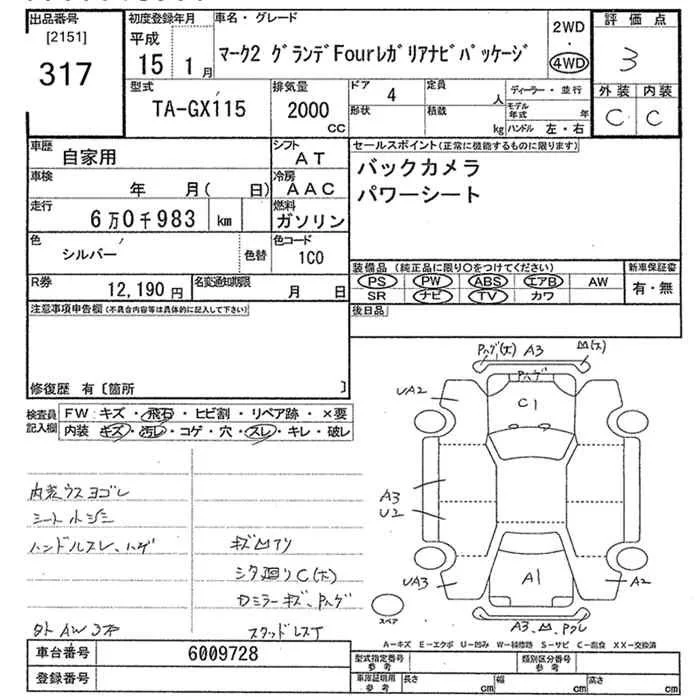 出品番号
[2151]
317
初度登録年月
平成
15 1月
車名・グレード
マーク2 グランデFourレガリアナビパッケージ
2WD
・
4WD
評価点
3
外装 内装
C C
型式
TA-GX115
排気量
2000
CC
ドア
4
形状
定員
人
積載
kg
ディーラー・並行
モデル年式 年
ハンドル 左・右
車歴
自家用
シフト
AT
車検
年 月( 日)
冷房
AAC
走行
6万0千983 km
燃料
ガソリン
色
シルバー
色替
色コード
1C0
R券
12,190円
名変通知期限
月 日
セールスポイント(正常に機能するものに限ります)
バックカメラ
パワーシート
装備品(純正品に限り○をつけてください)
PS PW ABS エアB AW
SR ナビ TV カワ
新車保証書
有・無
後日品
注意事項申告欄(不具合内容等は具体的に記入して下さい)
修復歴 有〔箇所 〕
検査員
記入欄
FW:キズ・飛石・ヒビ割・リペア跡・×要
内装 キズ・汚レ・コゲ・穴・スレ・キレ・破レ
内装ウスヨゴレ
シート小ジミ
ハンドルスレ、ハゲ
キズ凹アリ
シタ廻りC(大)
Dミラーキズ、Pハゲ
外AW3本
スタッドレス
Pハゲ(大) A3 凹(大)
Pハゲ
UA2
C1
A3
U2
UA3
A1
A2
A3、凹、Pワレ
スペア
A-キズ E-エクボ U-凹み W-補修跡 S-サビ C-腐食 XX-交換済
車台番号
6009728
登録番号
型式指定番号
参考
類別区分番号
参考
車庫証明用
参考
長さ cm
幅 cm
高さ cm